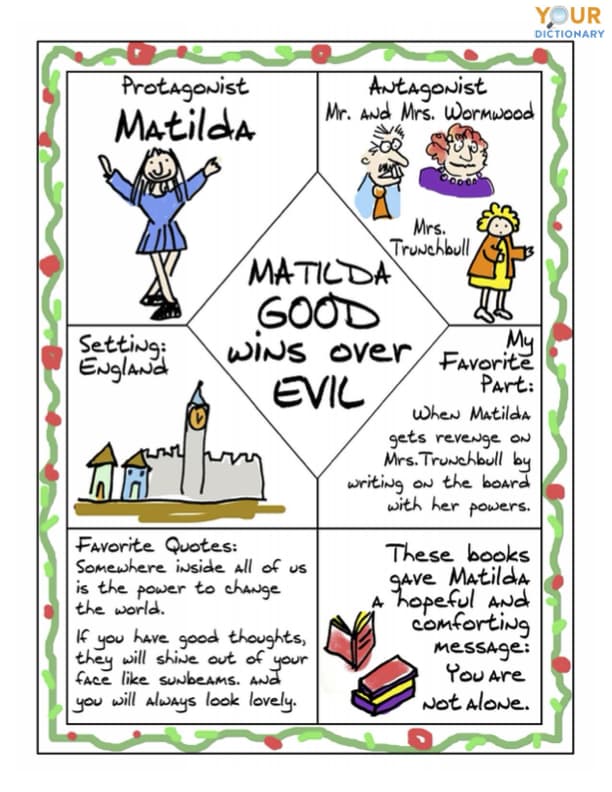 YOUR
DICTIONARY
Protagonist
Matilda
Antagonist
Mr. and Mrs. Wormwood
Mrs.
Trunchbull
MATILDA
GOOD
wins over
EVIL
Setting:
England
My
Favorite
Part:
When Matilda
gets revenge on
Mrs.Trunchbull by
writing on the board
with her powers.
Favorite Quotes:
Somewhere inside all of us
is the power to change
the world.
If you have good thoughts,
they will shine out of your
face like sunbeams. and
you will always look lovely.
These books
gave Matilda
a hopeful and
comforting
message:
You are
not alone.